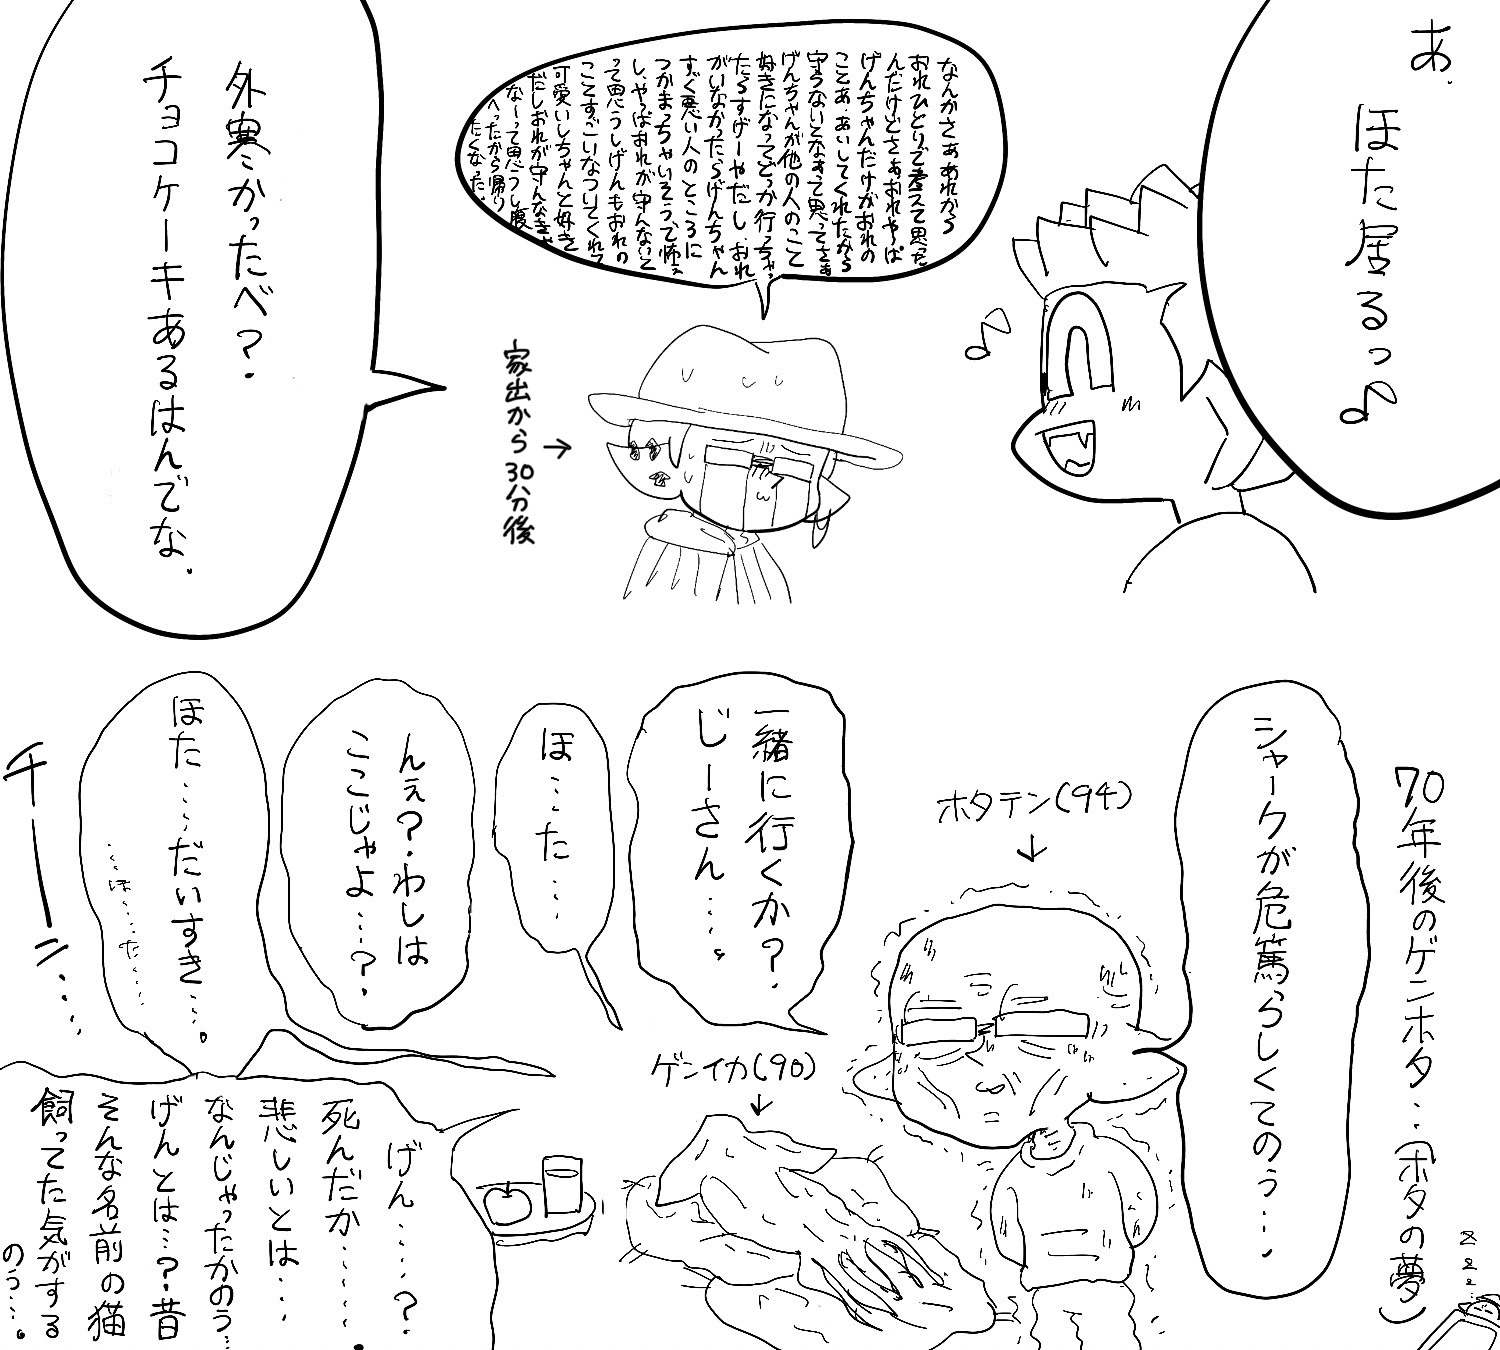 あ.
ほた居るっ♪
なんかさぁあれから
おれひとりで考えて思った
んだけどさぁおれやっぱ
げんちゃんだけがおれの
ことあ、あいしてくれたから
守らないとなぁって思ってさぁ
げんちゃんが他の人のこと
好きになってどっか行っちゃっ
たらすげーやだし、おれ
がいなかったらげんちゃん
すぐ悪い人のところに
つかまっちゃいそうって怖ぇ
し、やっぱおれが守んないと
って思うしげんもおれの
ことすごいなついてくれて
可愛いしちゃんと好き
だしおれが守んなきゃ
なーって思うし腹
へったから帰り
たくなった。
家出から30分後
→
外寒かったべ?
チョコケーキあるはんでな.
70年後のゲニホタ...(ホタの夢)
シャークが危篤らしくてのう....
ホタテン(94)
↓
一緒に行くか?
じーさん....。
ゲンイカ(90)
↓
ほ....た....
んぇ?わしは
ここじゃよ....?
ほた....だいすき...。
...ほ....た....
チーン...
げん....?
死んだか......
悲しいとは...
なんじゃったかのう...
げんとは...?昔
そんな名前の猫
飼ってた気がする
のう...。
zzz...